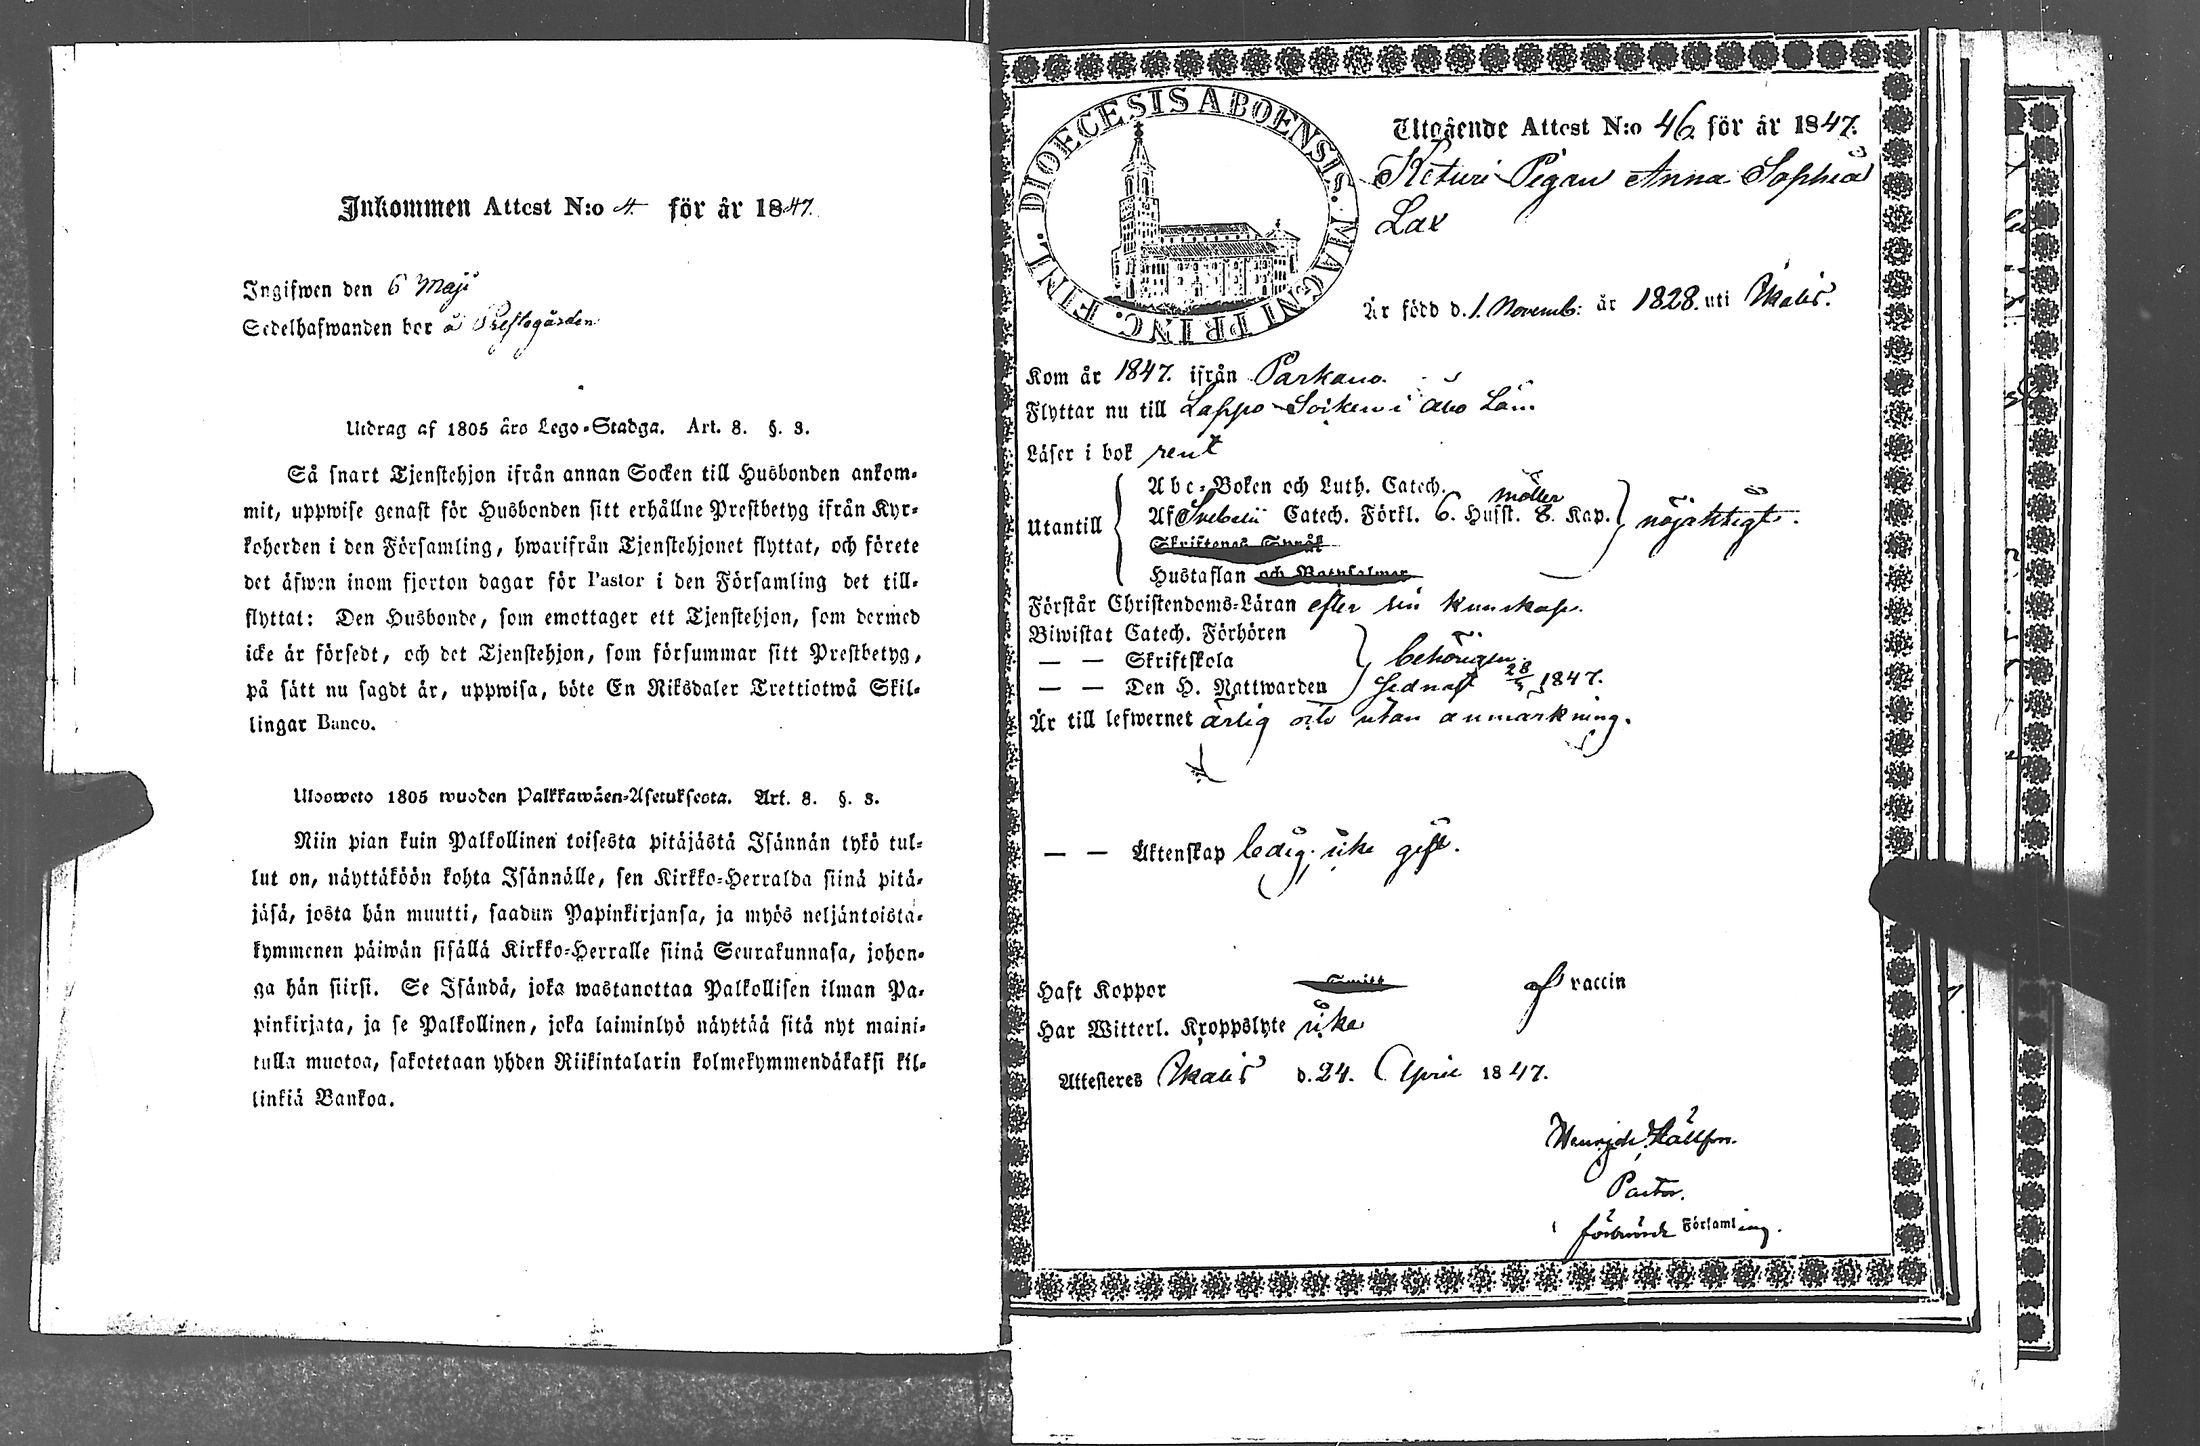 Inkommen Attest N:o 4. för år 1847.
Ingifwen den 6 Maji
Sedelhafwanden bor å Prestegården
Utdrag af 1805 års Lego-Stadga. Art. 8. §. 3.
Så snart Tjenstehjon ifrån annan Socken till Husbonden ankom-
mit, uppwise genast för Husbonden sitt erhållne Prestbetyg ifrån Kyr-
koherden i den Församling, hwarifrån Tjenstehjonet flyttat, och förete
det äfwen inom fjorton dagar för Pastor i den Församling det till-
flyttat: Den Husbonde, som emottager ett Tjenstehjon, som dermed
icke är försedt, och det Tjenstehjon, som försummar sitt Prestbetyg,
på sätt nu sagdt är, uppwisa, böte En Riksdaler Trettiotwå Skil-
lingar Banco.
Ulosweto 1805 wuoden Palkkawäen-Asetuksesta. Art. 8. §. 3.
Niin pian kuin Palkollinen toisesta pitäjästä Isännän tykö tul-
lut on, näyttäköön kohta Isännälle, sen Kirkko-Herralda siinä pitä-
jäsä, josta hän muutti, saadun Papinkirjansa, ja myös neljäntoista-
kymmenen päiwän sisällä Kirkko-Herralle siinä Seurakunnasa, johon-
ga hän siirsi. Se Isändä, joka wastanottaa Palkollisen ilman Pa-
pinkirjata, ja se Palkollinen, joka laiminlyö näyttää sitä nyt maini-
tulla muotoa, sakotetaan yhden Riikintalarin kolmekymmendäkaksi kil-
linkiä Bankoa.
DIOECESIS ABOENSIS. MAGNI PRINC. FINL.
Utgående Attest N:o 46 för år 1847.
Keturi Pigan Anna Sophia
Lax
Är född d. 1. Novemb: år 1828. uti Ikalis.
Kom år 1847. ifrån Parkano.
Flyttar nu till Lappo Socken i Åbo Län.
Läser i bok rent
Utantill
Abc-Boken och Luth. Catech.
Af Svebelii Catech. Förkl. 6. Hufst. 8. Kap.
Skriftenes Språk
Hustaflan och Botpsalmer
nöjaktigt.
Förstår Christendoms-Läran efter sin kunskap.
Biwistat Catech. Förhören
— — Skriftskola
— — Den H. Nattwarden
behörigen
sednast 28/3 1847.
Är till lefwernet ärlig och utan anmärkning.
— — Äktenskap ledig, icke gift.
Haft Koppor Smitt af vaccin
Har Witterl. Kroppslyte icke
Attesteres Ikalis d. 24. April 1847.
Pastor.
i förberörde Församling.